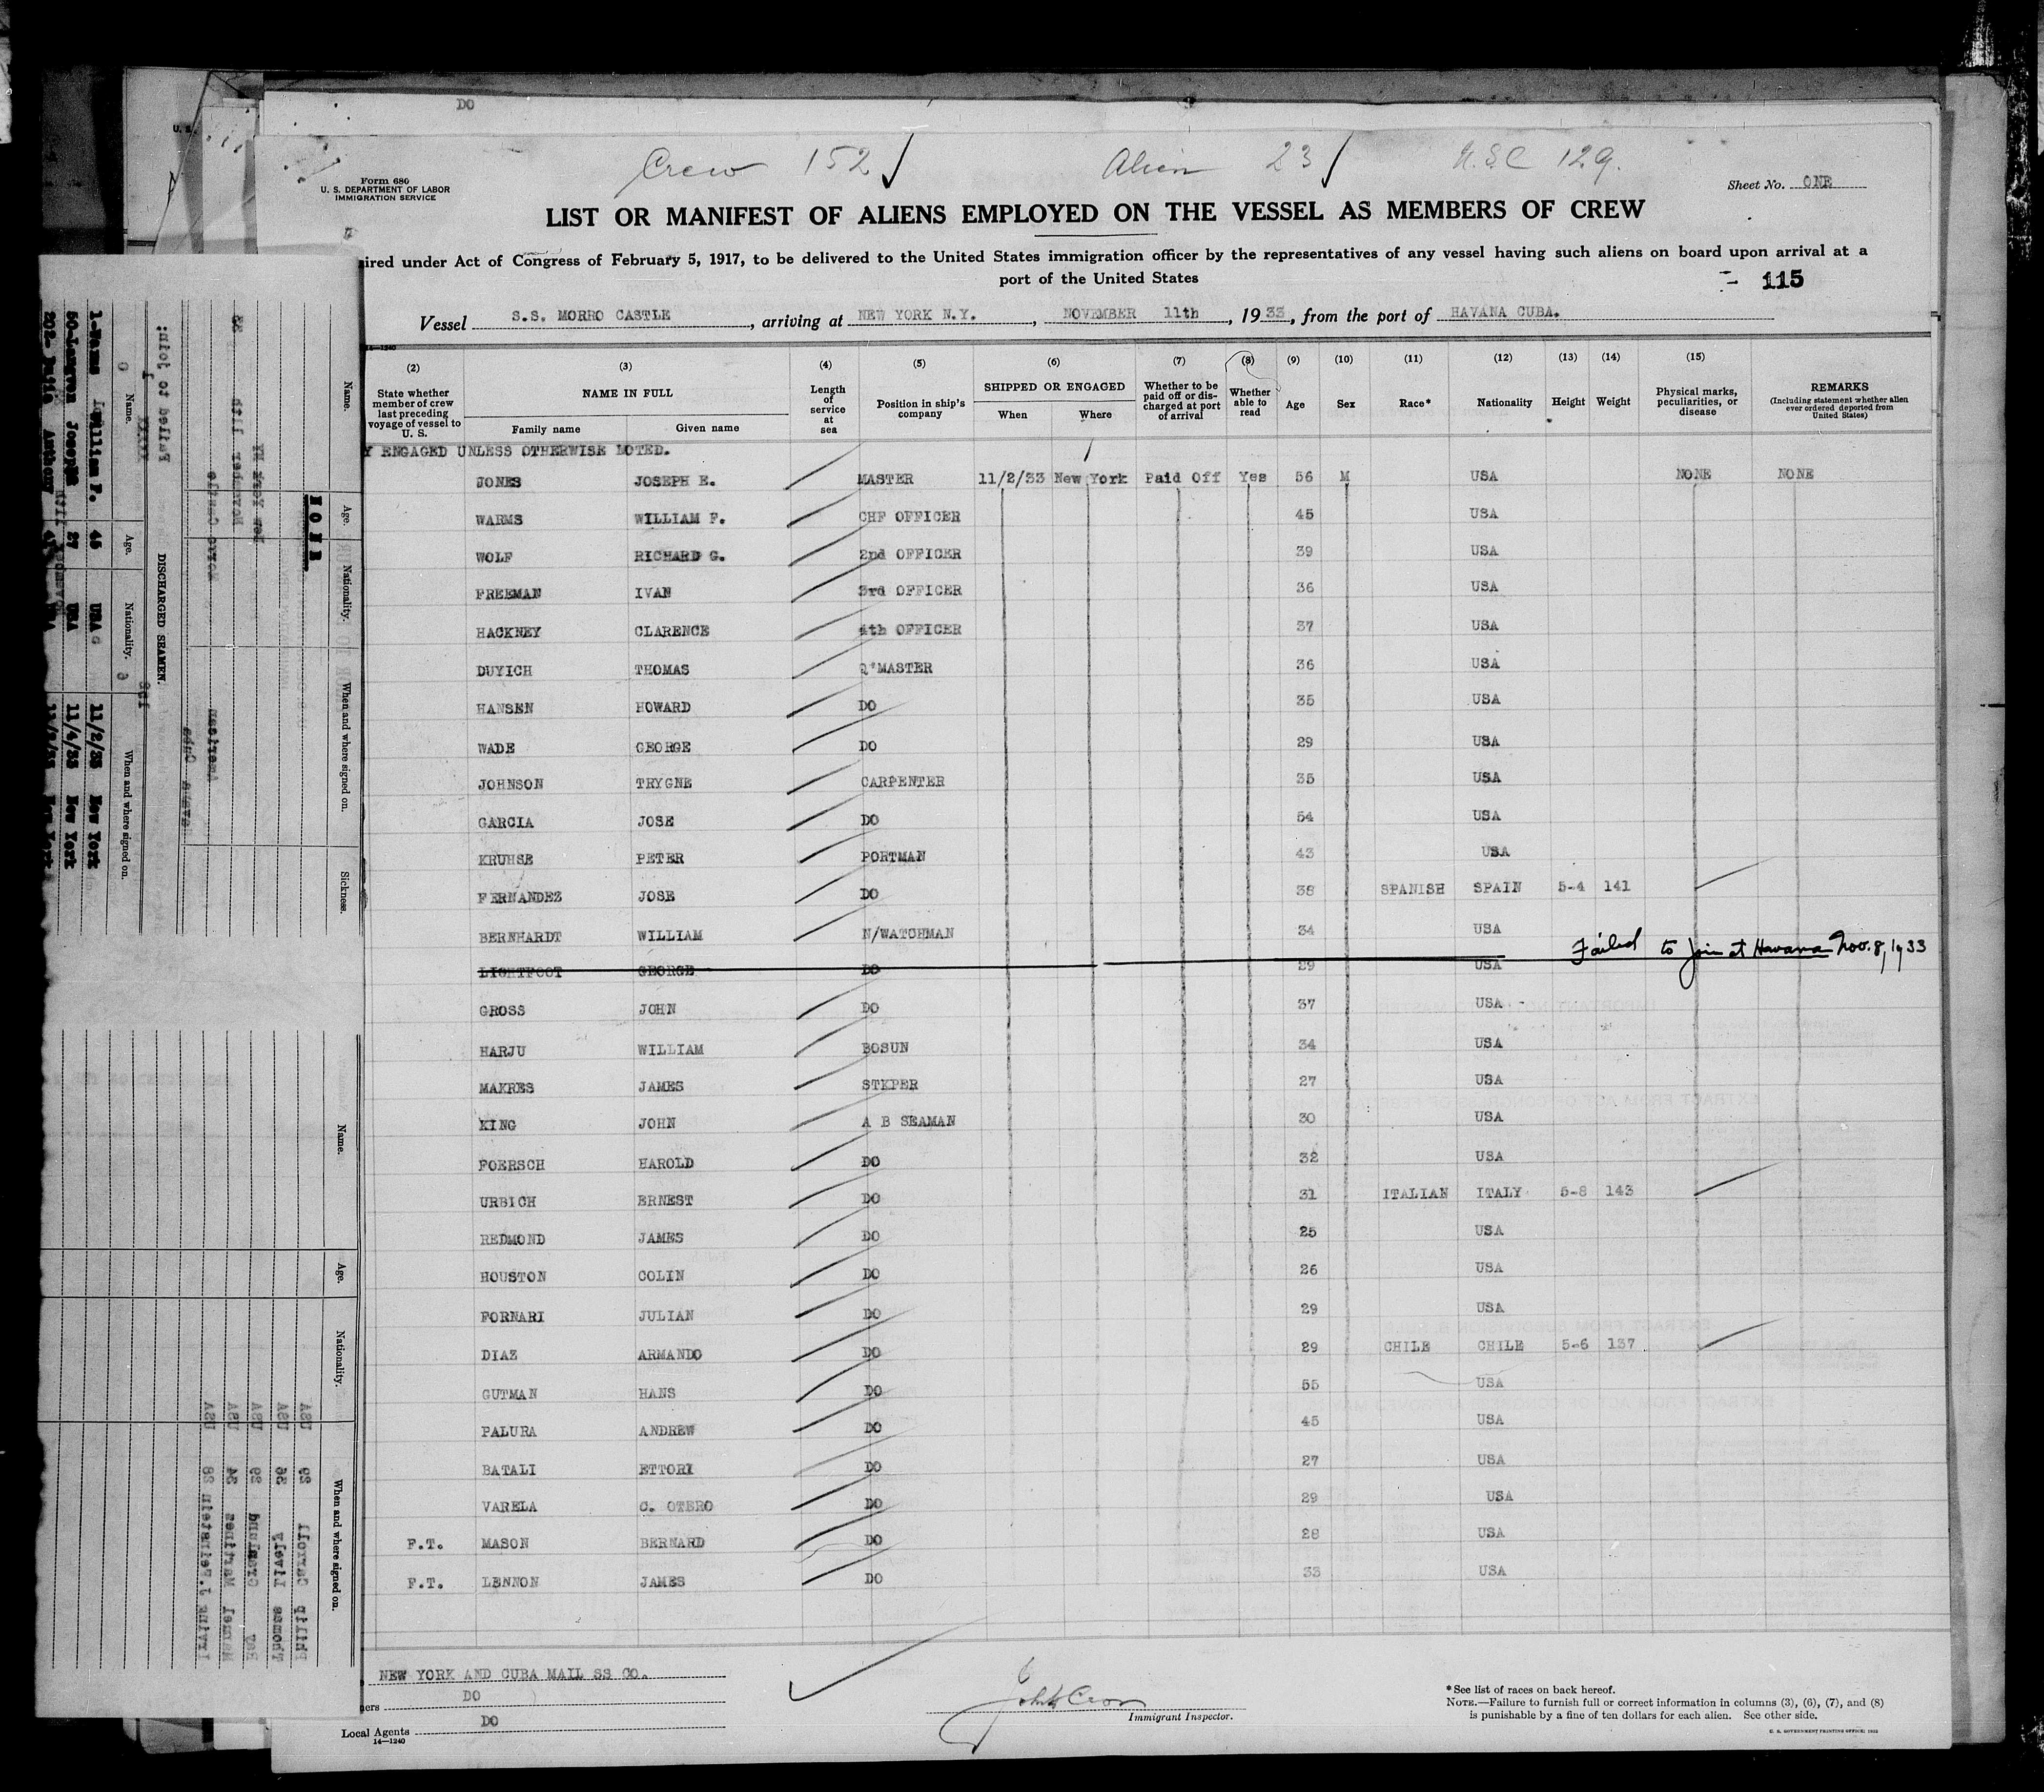 DO
Crew 152 Alien 23 U.S.C 129.
Form 680
U. S. DEPARTMENT OF LABOR
IMMIGRATION SERVICE
Sheet No. ONE
LIST OR MANIFEST OF ALIENS EMPLOYED ON THE VESSEL AS MEMBERS OF CREW
ired under Act of Congress of February 5, 1917, to be delivered to the United States immigration officer by the representatives of any vessel having such aliens on board upon arrival at a
port of the United States
115
Vessel S.S. MORRO CASTLE, arriving at NEW YORK N.Y., NOVEMBER 11th, 1933, from the port of HAVANA CUBA.
14—1240
(2) (3) (4) (5) (6) (7) (8) (9) (10) (11) (12) (13) (14) (15)
State whether member of crew last preceding voyage of vessel to U. S.
NAME IN FULL
Family name Given name
Length of service at sea
Position in ship's company
SHIPPED OR ENGAGED
When Where
Whether to be paid off or discharged at port of arrival
Whether able to read
Age
Sex
Race*
Nationality
Height
Weight
Physical marks, peculiarities, or disease
REMARKS
(Including statement whether alien ever ordered deported from United States)
Y ENGAGED UNLESS OTHERWISE NOTED.
JONES JOSEPH E. MASTER 11/2/33 New York Paid Off Yes 56 M USA NONE NONE
WARMS WILLIAM F. CHF OFFICER 45 USA
WOLF RICHARD G. 2nd OFFICER 39 USA
FREEMAN IVAN 3rd OFFICER 36 USA
HACKNEY CLARENCE 4th OFFICER 37 USA
DUYICH THOMAS Q'MASTER 36 USA
HANSEN HOWARD DO 35 USA
WADE GEORGE DO 29 USA
JOHNSON TRYGNE CARPENTER 35 USA
GARCIA JOSE DO 54 USA
KRUHSE PETER PORTMAN 43 USA
FERNANDEZ JOSE DO 38 SPANISH SPAIN 5-4 141
BERNHARDT WILLIAM N/WATCHMAN 34 USA
LIGHTFOOT GEORGE DO 29 USA Failed to join at Havana Nov. 8, 1933
GROSS JOHN DO 37 USA
HARJU WILLIAM BOSUN 34 USA
MAKRES JAMES STKPER 27 USA
KING JOHN A B SEAMAN 30 USA
FOERSCH HAROLD DO 32 USA
URBICH ERNEST DO 31 ITALIAN ITALY 5-8 143
REDMOND JAMES DO 25 USA
HOUSTON COLIN DO 26 USA
FORNARI JULIAN DO 29 USA
DIAZ ARMANDO DO 29 CHILE CHILE 5-6 137
GUTMAN HANS DO 55 USA
PALURA ANDREW DO 45 USA
BATALI ETTORI DO 27 USA
VARELA C. OTERO DO 29 USA
F.T. MASON BERNARD DO 28 USA
F.T. LENNON JAMES DO 33 USA
NEW YORK AND CUBA MAIL SS CO.
ners DO
Local Agents DO
14—1240
Immigrant Inspector.
*See list of races on back hereof.
NOTE.—Failure to furnish full or correct information in columns (3), (6), (7), and (8)
is punishable by a fine of ten dollars for each alien. See other side.
U. S. GOVERNMENT PRINTING OFFICE: 1932
Name. Age. Nationality. When and where signed on. Sickness.
DISCHARGED SEAMEN.
Name. Age. Nationality. When and where signed on.
45 USA 11/2/33 New York
27 USA 11/4/33 New York
Name. Age. Nationality. When and where signed on.